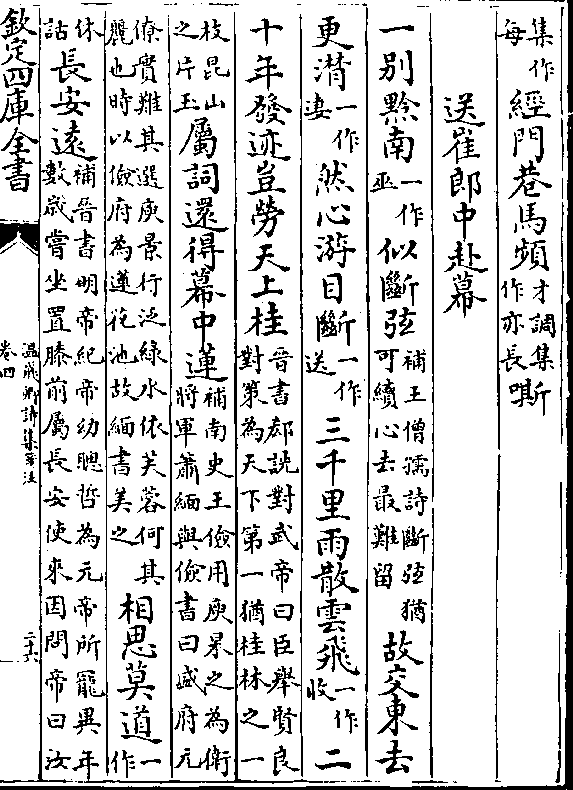 集作每經門巷馬頻才調集作亦長嘶
送崔郎中赴幕
一別黔南一作巫似斷弦補王僧孺詩斷弦猶可續心去最難留故交東去
更潸一作凄然心游目斷一作送三千里雨散雲飛一作收二
十年發迹豈勞天上桂晉書郄詵對武帝曰臣舉賢良對策為天下第一猶桂林之一
枝昆山之片玉屬詞還得幕中蓮補南史王儉用庾杲之為衛將軍蕭緬與儉書曰盛府元
僚實難其選庾景行泛緑水依芙蓉何其麗也時以儉府為蓮花池故緬書美之相思莫道一作
休詁長安遠補晉書明帝紀帝幼聰哲為元帝所寵異年數歲嘗坐置膝前屬長安使來因問帝曰汝
欽定四庫全書
溫飛卿詩集箋注
卷四
二十六